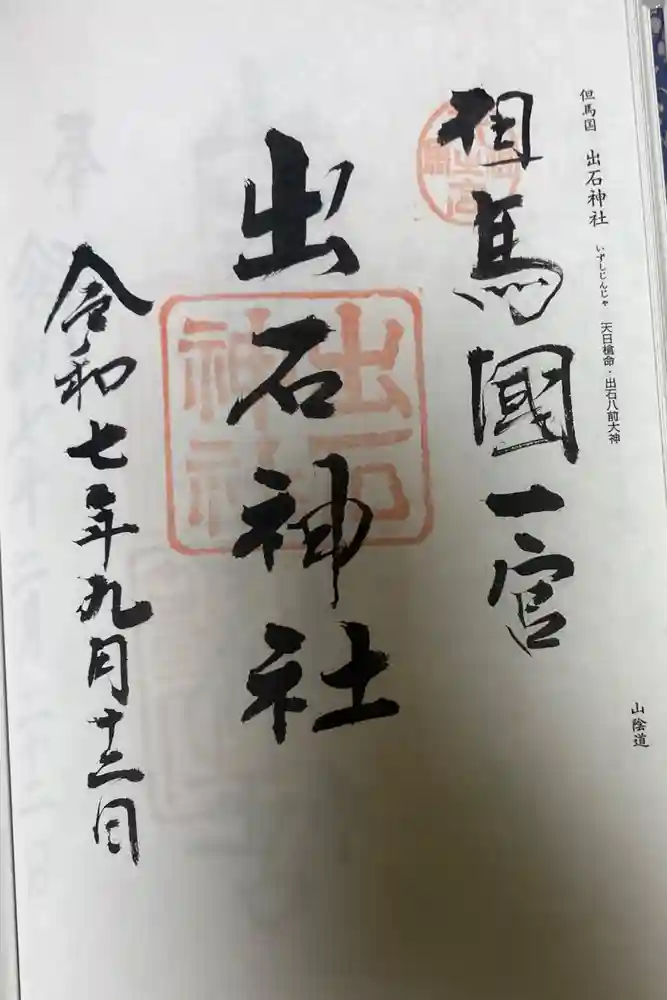 但馬国 出石神社 いずしじんじゃ 天日槍命・出石八前大神
山陰道
但馬國一宮
出石神社
出石神社
令和七年九月十二日